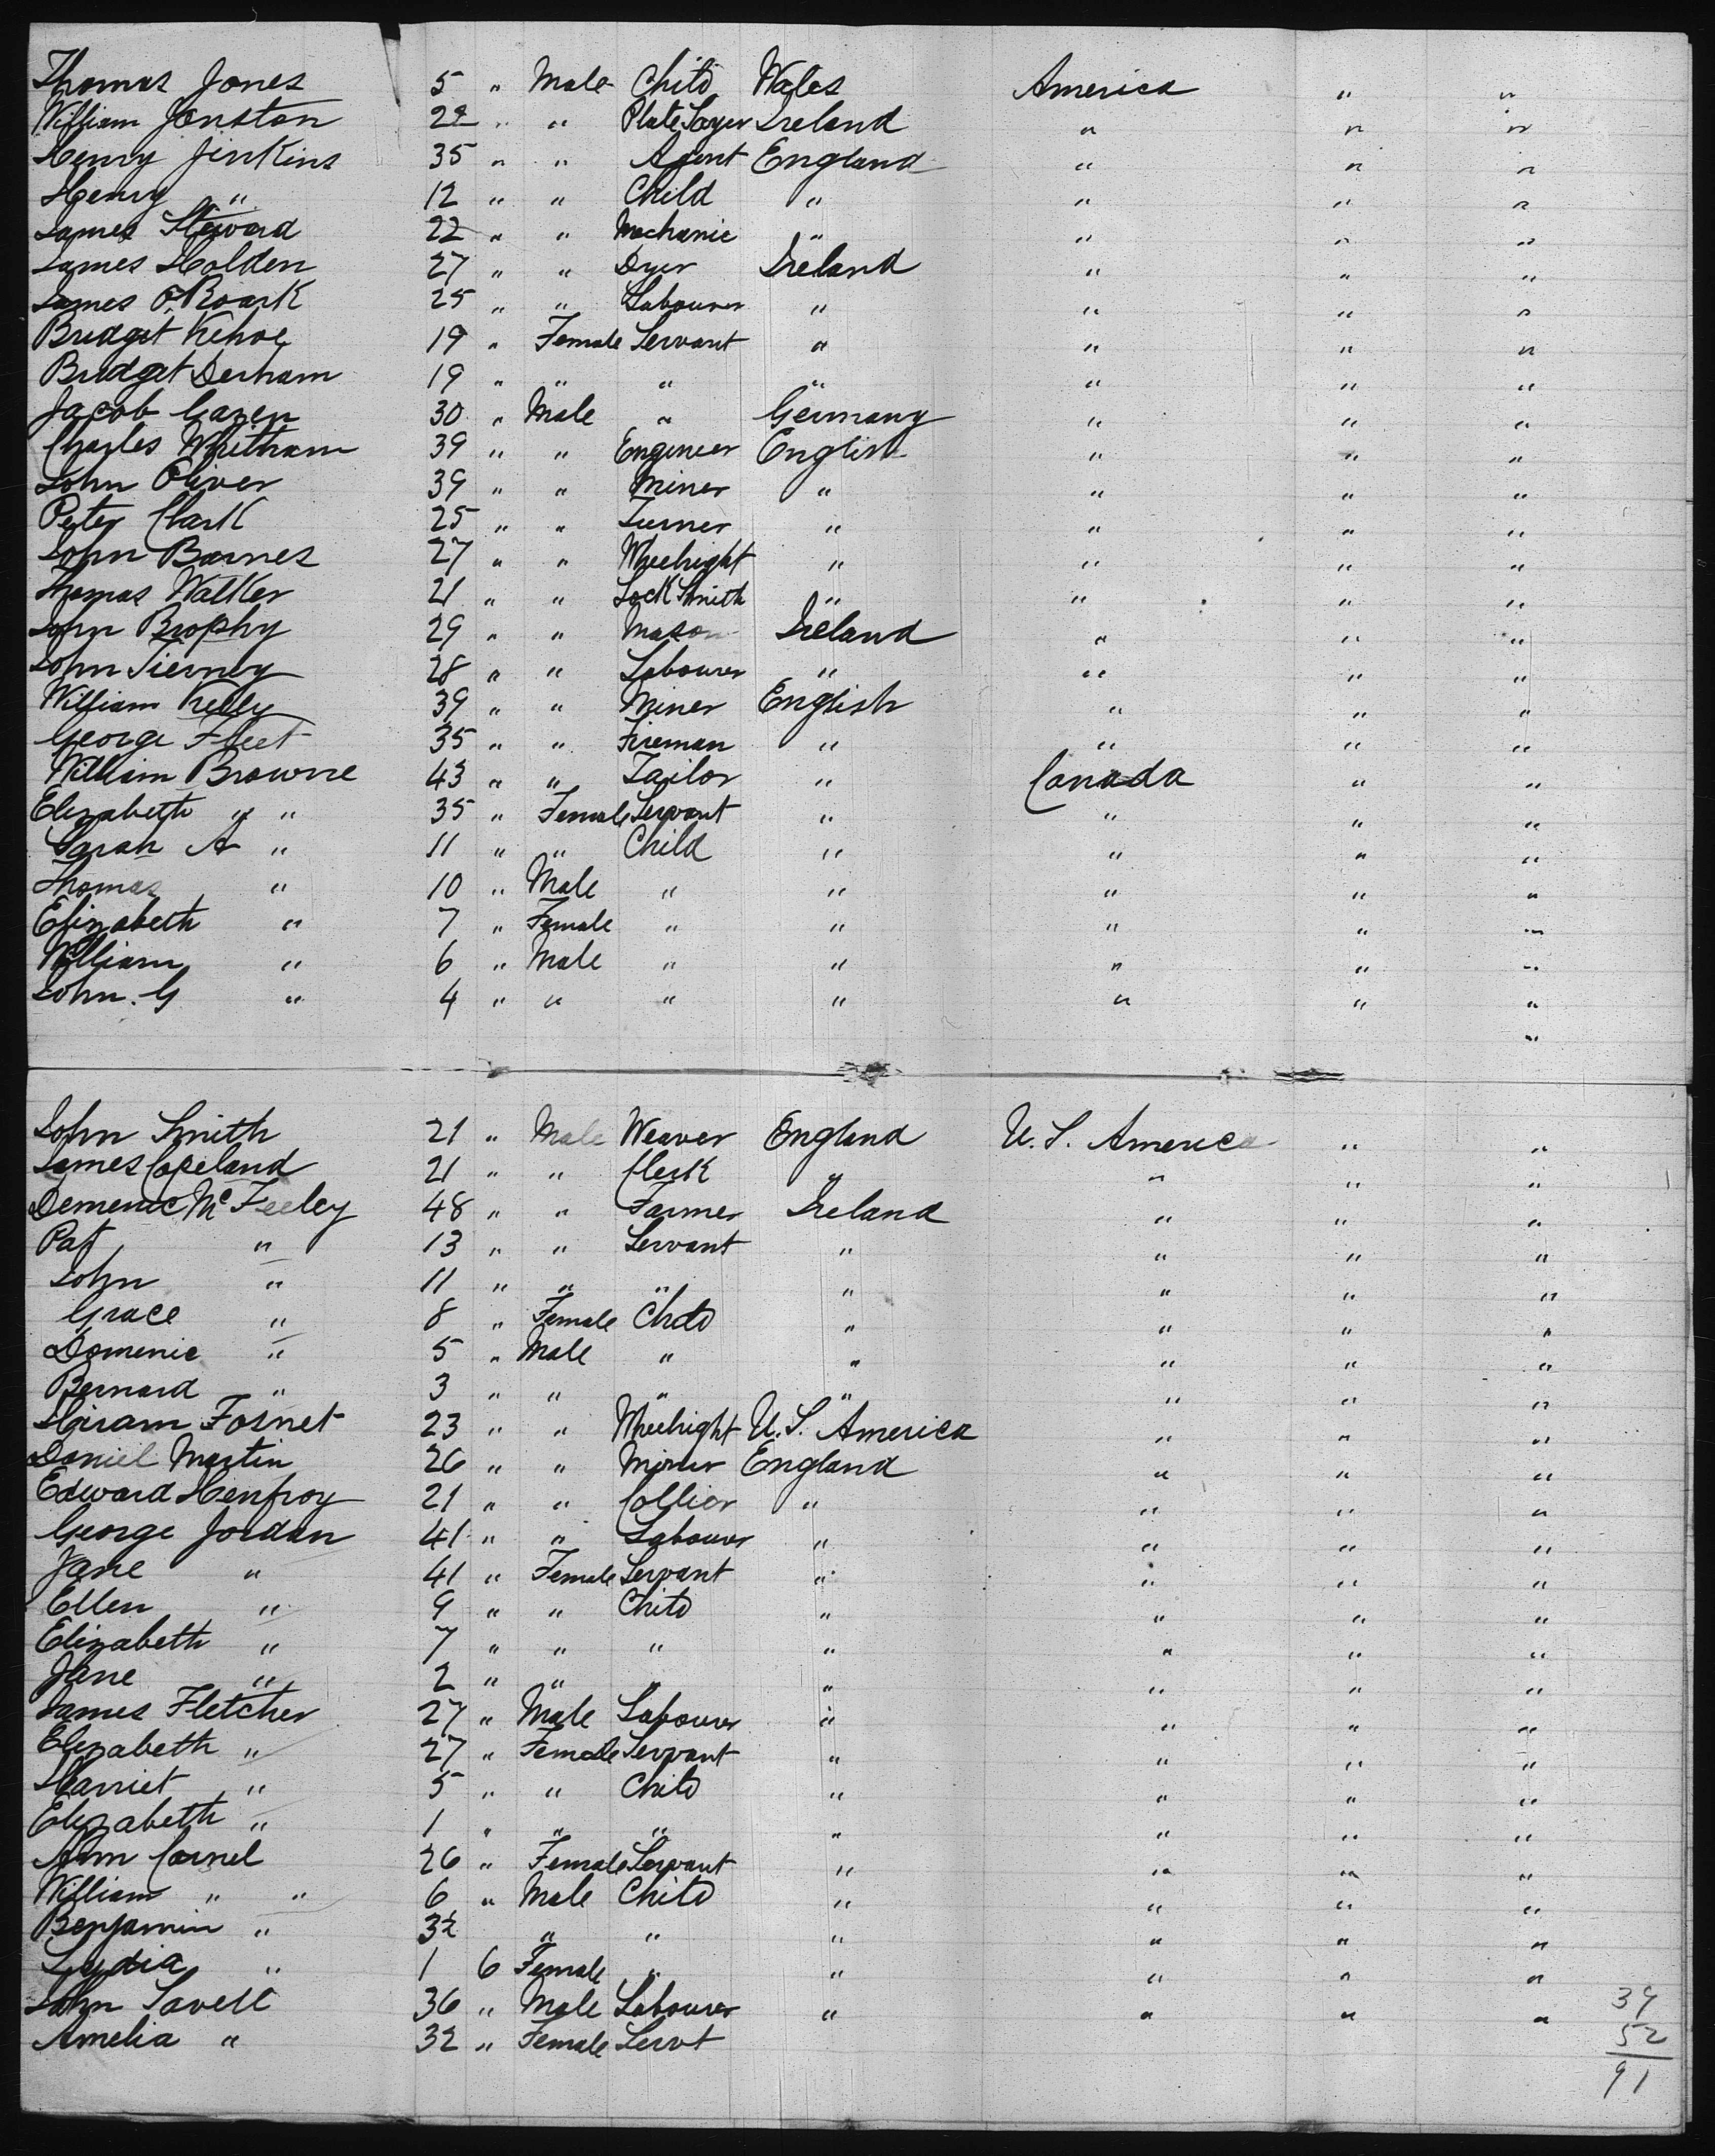 Thomas Jones 5 " Male Child Wales America " "
William Jonston 22 " " Plate Layer Ireland " " "
Henry Jinkins 35 " " Agent England " " "
Henry " 12 " " Child " " " "
James Steward 22 " " Mechanic " " " "
James Holden 27 " " Dyer Ireland " " "
James O'Roark 25 " " Labourer " " " "
Bridget Kehoe 19 " Female Servant " " " "
Bridget Derham 19 " " " " " " "
Jacob Gazen 30 " Male " Germany " " "
Charles Whitham 39 " " Engineer English " " "
John Oliver 39 " " Miner " " " "
Peter Clark 25 " " Turner " " " "
John Barnes 27 " " Wheelright " " " "
Thomas Walker 21 " " Lock Smith " " " "
John Brophy 29 " " Mason Ireland " " "
John Tierney 28 " " Labourer " " " "
William Kelly 39 " " Miner English " " "
George Fleet 35 " " Fireman " " " "
William Browne 43 " " Tailor " Canada " "
Elizabeth " " 35 " Female Servant " " " "
Sarah A " 11 " " Child " " " "
Thomas " 10 " Male " " " " "
Elizabeth " 7 " Female " " " " "
William " 6 " Male " " " " "
John. G " 4 " " " " " " "
"
John Smith 21 " Male Weaver England U.S. America " "
James Copeland 21 " " Clerk " " " "
Demenic McFeeley 48 " " Farmer Ireland " " "
Pat " 13 " " Servant " " " "
John " 11 " " " " " " "
Grace " 8 " Female Child " " " "
Domenic " 5 " Male " " " " "
Bernard " 3 " " " " " " "
Hiram Fosnet 23 " " Wheelright U.S. America " " "
Daniel Martin 26 " " Miner England " " "
Edward Henfroy 21 " " Collier " " " "
George Jordan 41 " " Labourer " " " "
Jane " 41 " Female Servant " " " "
Ellen " 9 " " Child " " " "
Elizabeth " 7 " " " " " " "
Jane " 2 " " " " " " "
James Fletcher 27 " Male Labourer " " " "
Elizabeth " 27 " Female Servant " " " "
Harriet " 5 " " Child " " " "
Elizabeth " 1 " " " " " " "
Ann Cornel 26 " Female Servant " " " "
William " " 6 " Male Child " " " "
Benjamin " 3½ " " " " " "
Lydia " 1 6 Female " " " " "
John Savell 36 " Male Labourer " " " " 39
Amelia " 32 " Female Servt 52
91